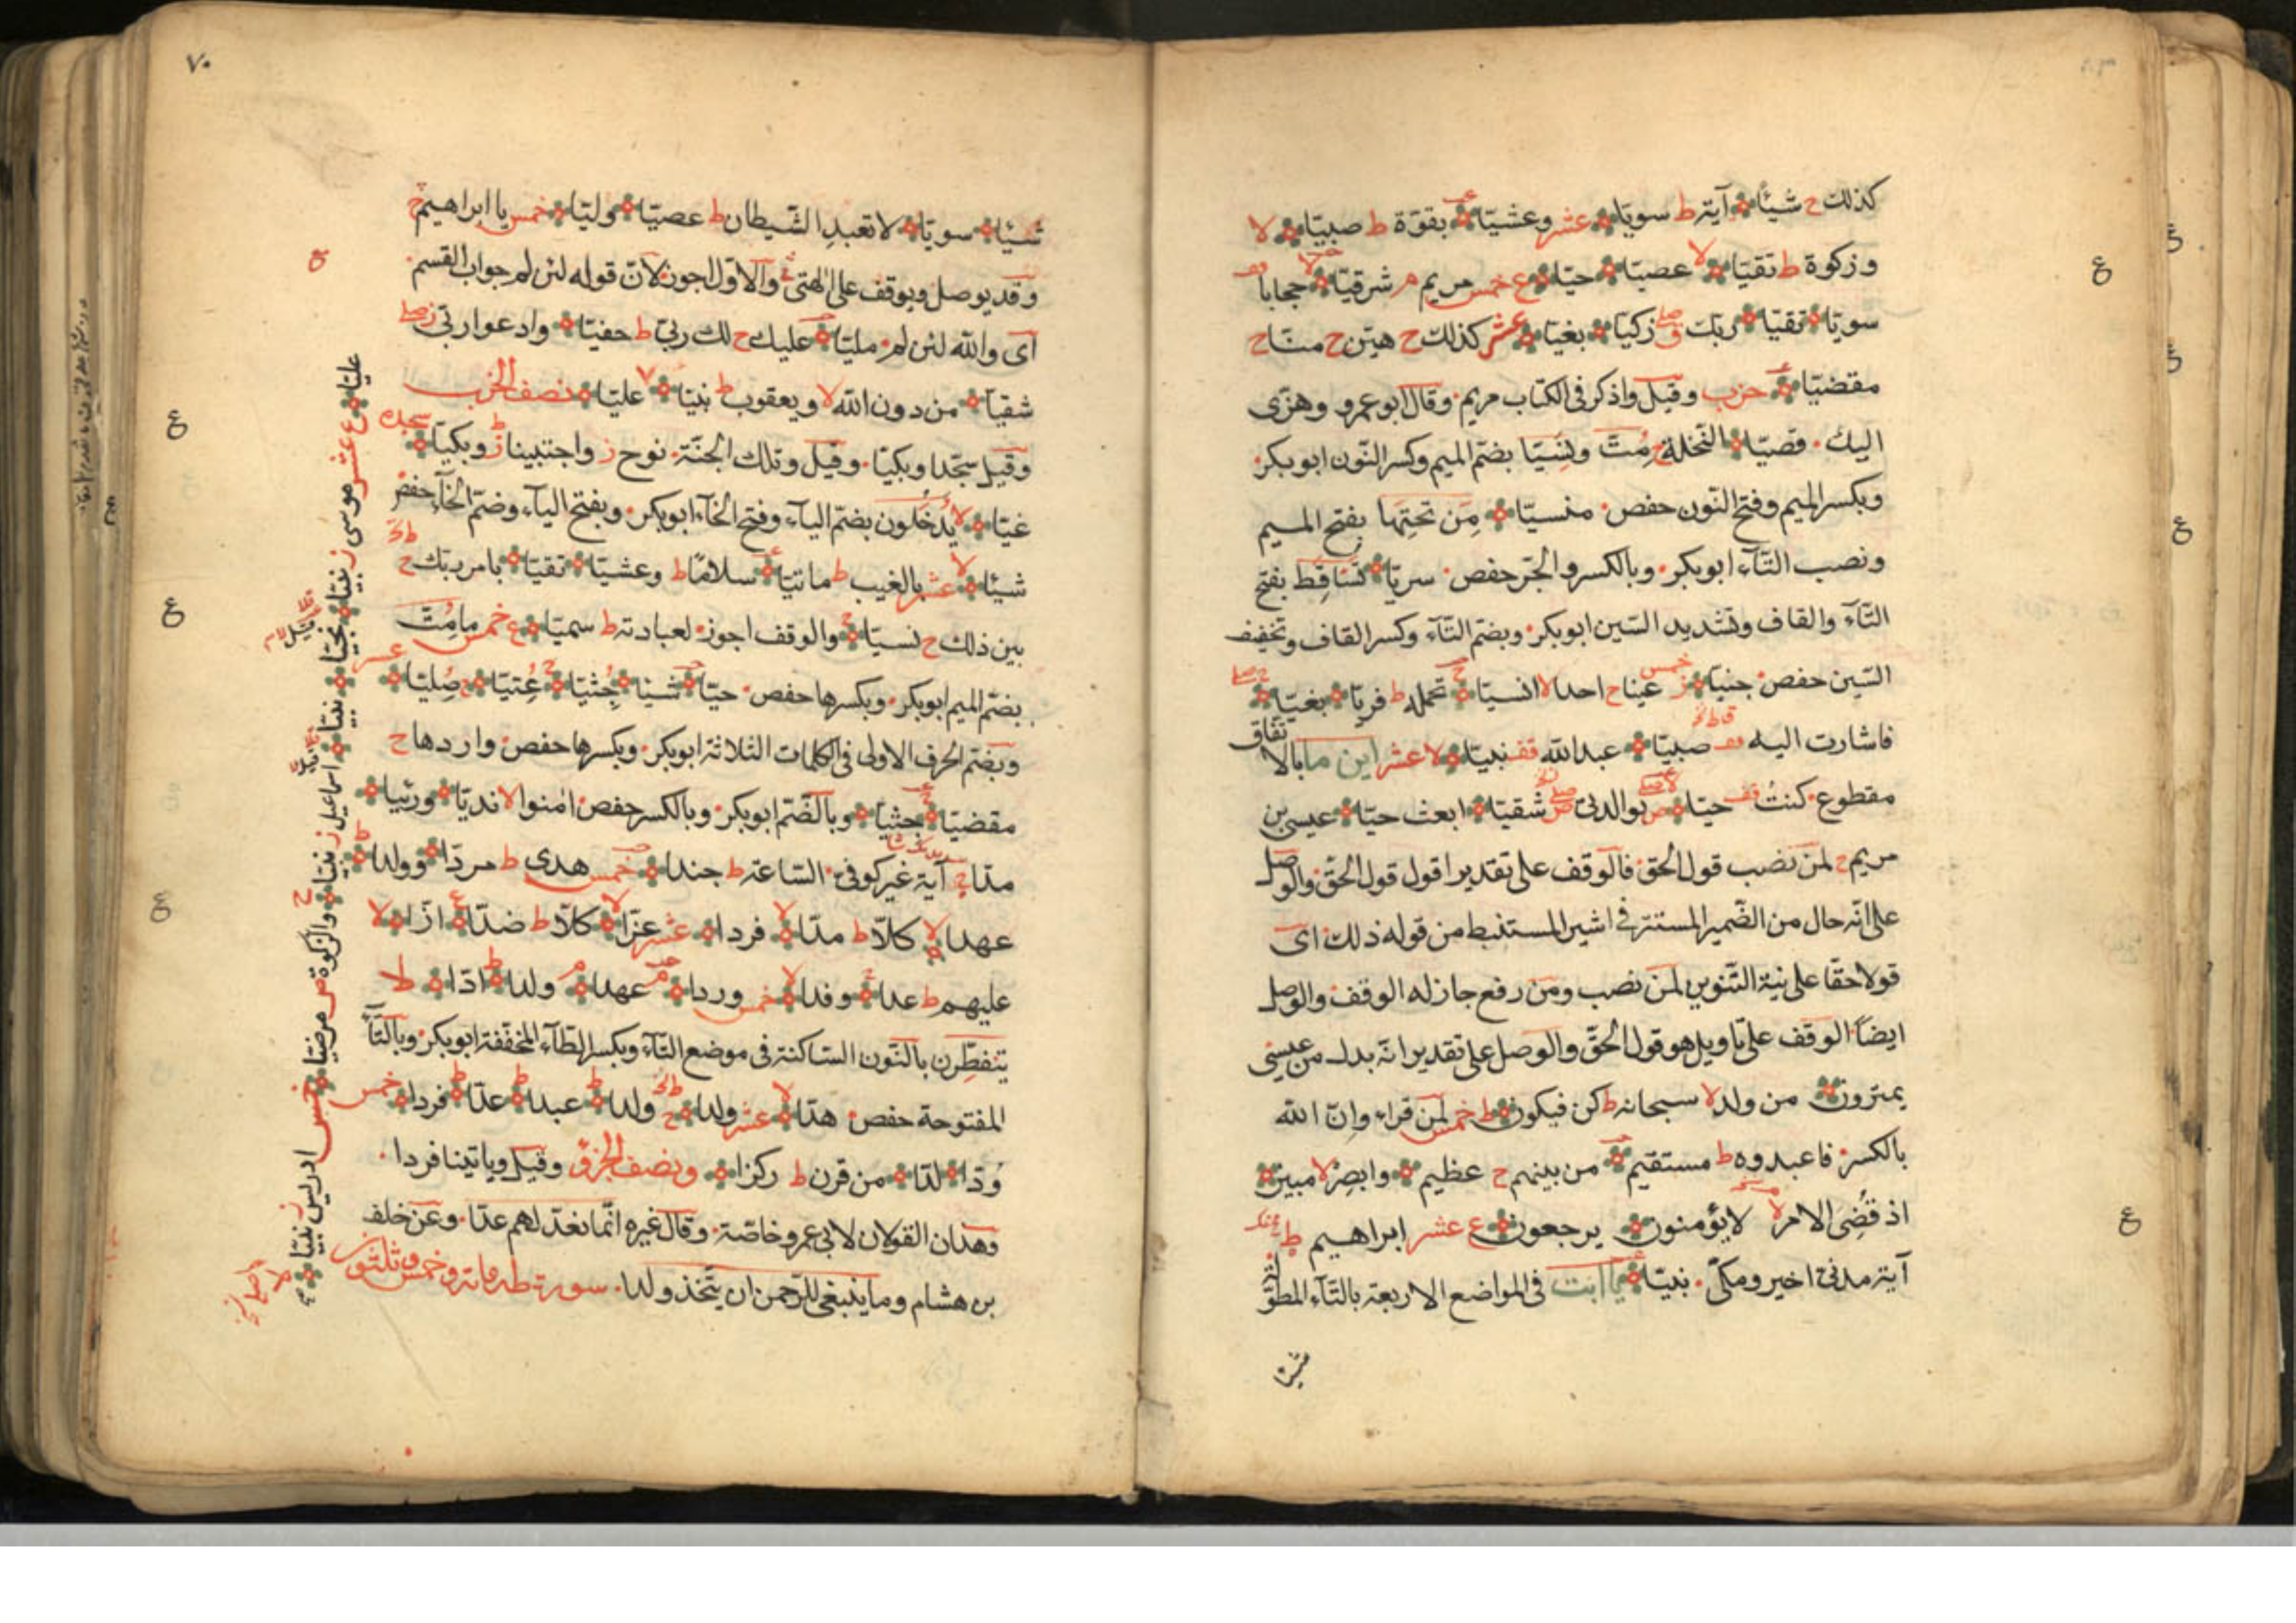 كذلك ح شيئا آية ط سويا عشر وعشيا بقوة ط صبيا لا
وزكوة ط تقيا لا عصيا حيا ع خمس مريم م شرقيا حجابا
سويا تقيا ربك زكيا بغيا عشر كذلك ح هين ح منا ح
مقضيا حزب وقيل واذكر في الكتاب مريم وقال ابو عمرو وهزى
اليك قصيا النخلة ح مُتّ ونسيا بضم الميم وكسر النون ابو بكر
وبكسر الميم وفتح النون حفص منسيا مَن تحتَها بفتح الميم
ونصب التاء ابو بكر وبالكسر والجر حفص سريا تسّاقط بفتح
التاء والقاف وتشديد السين ابو بكر وبضم التاء وكسر القاف وتخفيف
السين حفص جنيا ز خمس عينا ح احدا لا انسيا تحمله ط فريا بغيا
فاشارت اليه صبيا عبد الله قف نبيا لا عشر اين ما بالا تفاق
مقطوع كنتُ حيا بوالدتى شقيا ابعث حيا عيسى بن
مريم ح لمن نصب قول الحق فالوقف على تقدير اقول قول الحق والوصل
على انه حال من الضمير المستتر في اشير المستنبط من قوله ذلك اى
قولا حقا على نية التنوين لمن نصب ومن رفع جاز له الوقف والوصل
ايضا الوقف على تاويل هو قول الحق والوصل على تقدير انه بدل من عيسى
يمترون من ولد لا سبحانه ط كن فيكون ط خمس لمن قراء وان الله
بالكسر فاعبدوه ط مستقيم من بينهم ح عظيم وابصر لا مبين
اذ قضى الامر لا لا يؤمنون يرجعون ع عشر ابراهيم ط
آية مدنى اخير ومكى نبيا يا ابت في المواضع الاربعة بالتاء المطو
شيئا
٧٠
شيئا سويا لا تعبد الشيطان ط عصيا وليا خمس يا ابراهيم ح
وقد يوصل ويوقف على الهتى والاول اجوز لان قوله لئن لم جواب القسم
اى والله لئن لم مليا عليك ح لك ربى ط حفيا وادعوا ربى
شقيا من دون الله لا ويعقوب ط نبيا عليا نصف الحزب
وقيل سجدا وبكيا وقيل وتلك الجنة نوح ز واجتبينا ط وبكيا سجدة
غيا لا يُدخَلون بضم الياء وفتح الخاء ابو بكر وبفتح الياء وضم الخاء حفص
شيئا لا عشر بالغيب ط ماتيا سلاما ط وعشيا تقيا بامر ربك ح
بين ذلك ح نسيا والوقف اجوز لعبادته ط سميا ع خمس ما مُتّ
بضم الميم ابو بكر وبكسرها حفص حيا شيئا جُثيا عُتيا صُليا عشر
وبضم الحرف الاولى في الكلمات الثلاثة ابو بكر وبكسرها حفص واردها ح
مقضيا جثيا وبالضم ابو بكر وبالكسر حفص امنوا لا نديا ورئيا
مدا آية غير كوفى الساعة ط جندا خمس هدى ط مردا وولدا
عهدا لا كلا ط مدا لا فردا عشر عزا لا كلا ط ضدا ازا لا
عليهم ط عدا وفدا لا خمس وردا عهدا م ولدا ط ادا لا
ينفطرن بالنون الساكنة فى موضع التاء وبكسر الطاء المخففة ابو بكر وبالتاء
المفتوحة حفص هدا لا عشر ولدا ولدا ط عبدا ط عدا ط فردا خمس
وُدّا لدا من قرن ط ركزا ونصف الجزؤ وقيل وياتينا فردا
وهذان القولان لابى عمرو خاصة وقال غيره انما نعد لهم عدا وعن خلف
بن هشام وما ينبغى للرحمن ان يتخذ ولدا سورة طه مائة وخمس وثلثون
عليا ع عشر موسى ز نبيا نجيا نبيا نبيا اسماعيل ز نبيا والزكوة ص مرضيا خمس ادريس ز نبيا